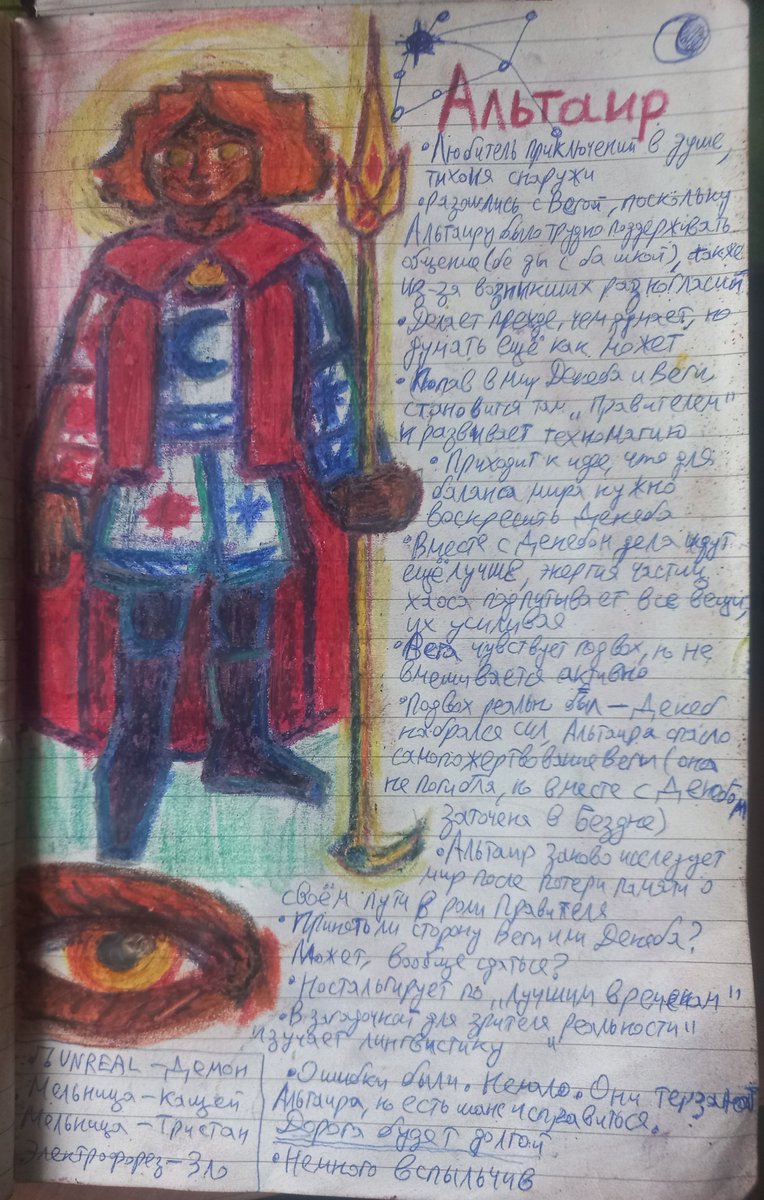 Альтаир
• Любитель приключений в душе,
тихоня снаружи
• Разошлись с Вегой, поскольку
Альтаиру было трудно поддерживать
общение (беды с башкой), также
из-за возникших разногласий
• Делает прежде, чем думает, но
думать ещё как может
• Попав в мир Денеба и Веги,
становится там „Правителем"
и развивает техномагию
• Приходит к идее, что для
баланса мира нужно
воскресить Денеба
• Вместе с Денебом дела идут
ещё лучше, энергия частиц
хаоса подпитывает все вещи,
их усиливая
• Вега чувствует подвох, но не
вмешивается активно
• Подвох реально был — Денеб
набрался сил, Альтаира спасло
самопожертвование Веги (она
не погибла, но вместе с Денебом
заточена в Бездне)
• Альтаир заново исследует
мир после потери памяти о
своём пути в роли Правителя
• Принять ли сторону Веги или Денеба?
Может, вообще сдаться?
• Ностальгирует по „лучшим временам"
• В загадочной для зрителя „реальности"
изучает лингвистику
• Ошибки были. Немало. Они терзают
Альтаира, но есть шанс исправиться.
Дорога будет долгой
• Немного вспыльчив
UNREAL — Демон
• Мельница — Кащей
Мельница — Тристан
Электрофорез — Зло